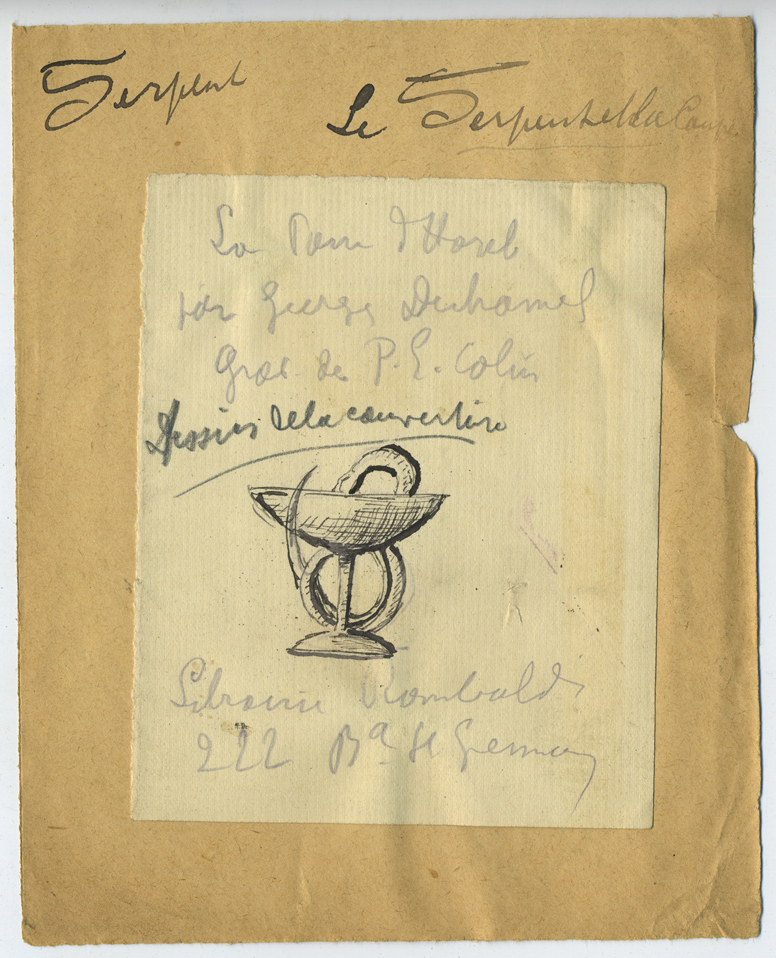 Serpent
Le Serpent et la Coupe
La Pierre d'Horeb
par Georges Duhamel
Grav. de P. E. Colin
Dessin de la couverture
Librairie Rombaldi
222 Bd St Germain